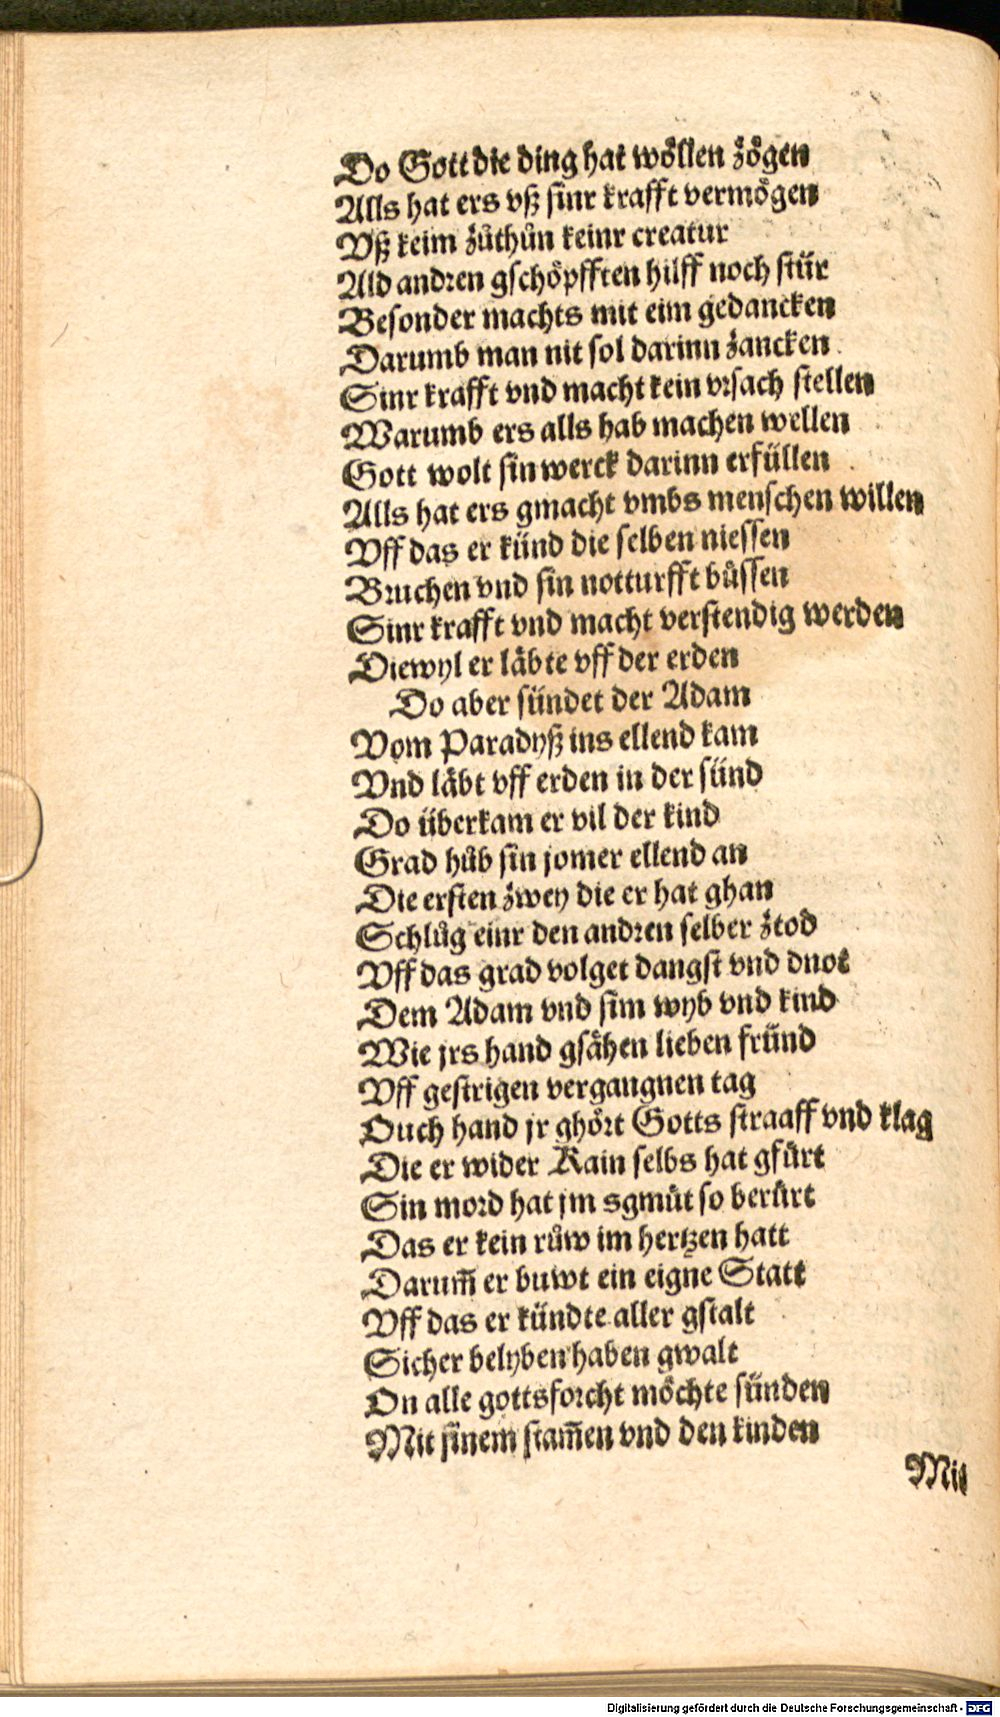 Do Gott die ding hat wöllen zögen
Alls hat ers vß sinr krafft vermögen
Vß keim zůthůn keinr creatur
Ald andren gschöpfften hilff noch stür
Besonder machts mit eim gedancken
Darumb man nit sol darinn zancken
Sinr krafft vnd macht kein vrsach stellen
Warumb ers alls hab machen wellen
Gott wolt sin werck darinn erfüllen
Alls hat ers gmacht vmbs menschen willen
Vff das er künd die selben niessen
Bruchen vnd sin notturfft bůssen
Sinr krafft vnd macht verstendig werden
Diewyl er läbte vff der erden
Do aber sündet der Adam
Vom Paradyß ins ellend kam
Vnd läbt vff erden in der sünd
Do überkam er vil der kind
Grad hůb sin jomer ellend an
Die ersten zwey die er hat ghan
Schlůg einr den andren selber ztod
Vff das grad volget dangst vnd dnot
Dem Adam vnd sim wyb vnd kind
Wie jrs hand gsähen lieben fründ
Vff gestrigen vergangnen tag
Ouch hand jr ghört Gotts straaff vnd klag
Die er wider Kain selbs hat gfürt
Sin mord hat jm sgmüt so berürt
Das er kein růw im hertzen hatt
Darum̄ er buwt ein eigne Statt
Vff das er kündte aller gstalt
Sicher belyben haben gwalt
On alle gottsforcht möchte sünden
Mit sinem stam̄en vnd den kinden
Mit
Digitalisierung gefördert durch die Deutsche Forschungsgemeinschaft - DFG